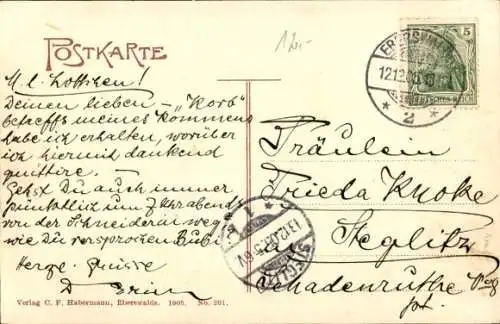 POSTKARTE
M. l. Lottchen!
Deinen lieben – „Korb"
betreffs meines Kommens
habe ich erhalten, worüber
ich hiermit dankend
quittire. –
Gehst Du auch immer
pünktlich um 7 Uhr abends
von der Schneiderei weg
wie Du versprochen
Herzl. Grüsse
D.
Fräulein
Frieda Knoke
Steglitz
Schadenruthe
5
DEUTSCHES REICH
12.12.
* 2 *
STEGLITZ
Verlag C. F. Habermann, Eberswalde. 1905. No. 201.